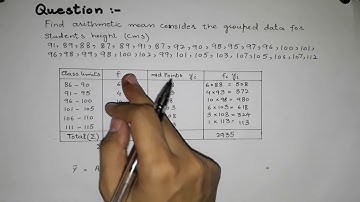 Question :-
Find arithmetic mean consider the grouped data for
students height (cms)
91, 89, 88, 87, 89, 91, 87, 92, 90, 98, 95, 97, 96, 100, 101,
96, 98, 99, 98, 100, 102, 99, 101, 105, 103, 107, 105, 106, 107, 112
Class limits f mid Points Yi fi Yi
86 - 90 6 6 × 88 = 528
91 - 95 4 4 × 93 = 372
96 - 100 10 10 × 98 = 980
101 - 105 6 × 103 = 618
106 - 110 3 × 108 = 324
111 - 115 1 × 113 = 113
Total (Σ) 2935
ȳ = A =